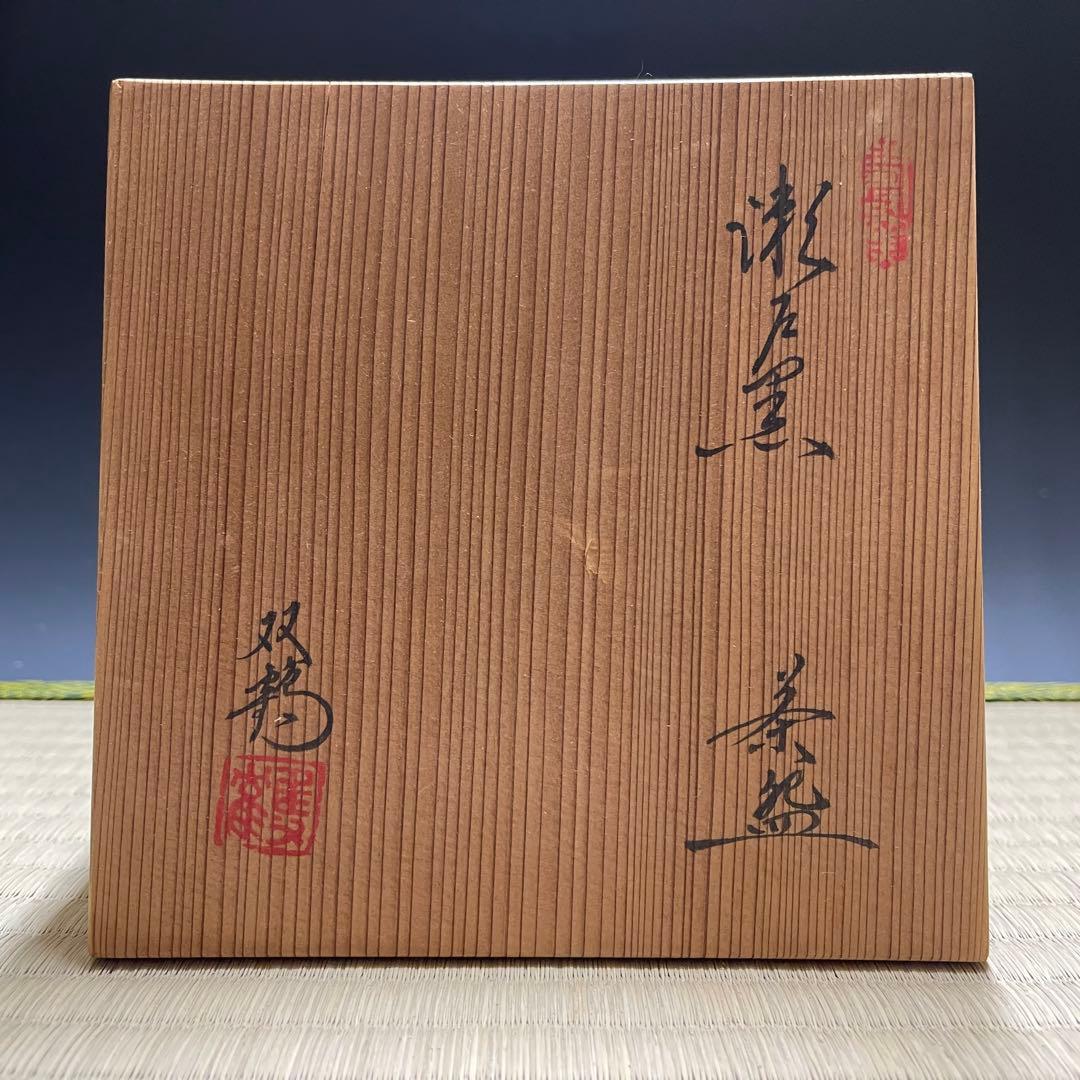 瀬戸黒
茶盌
双鶴